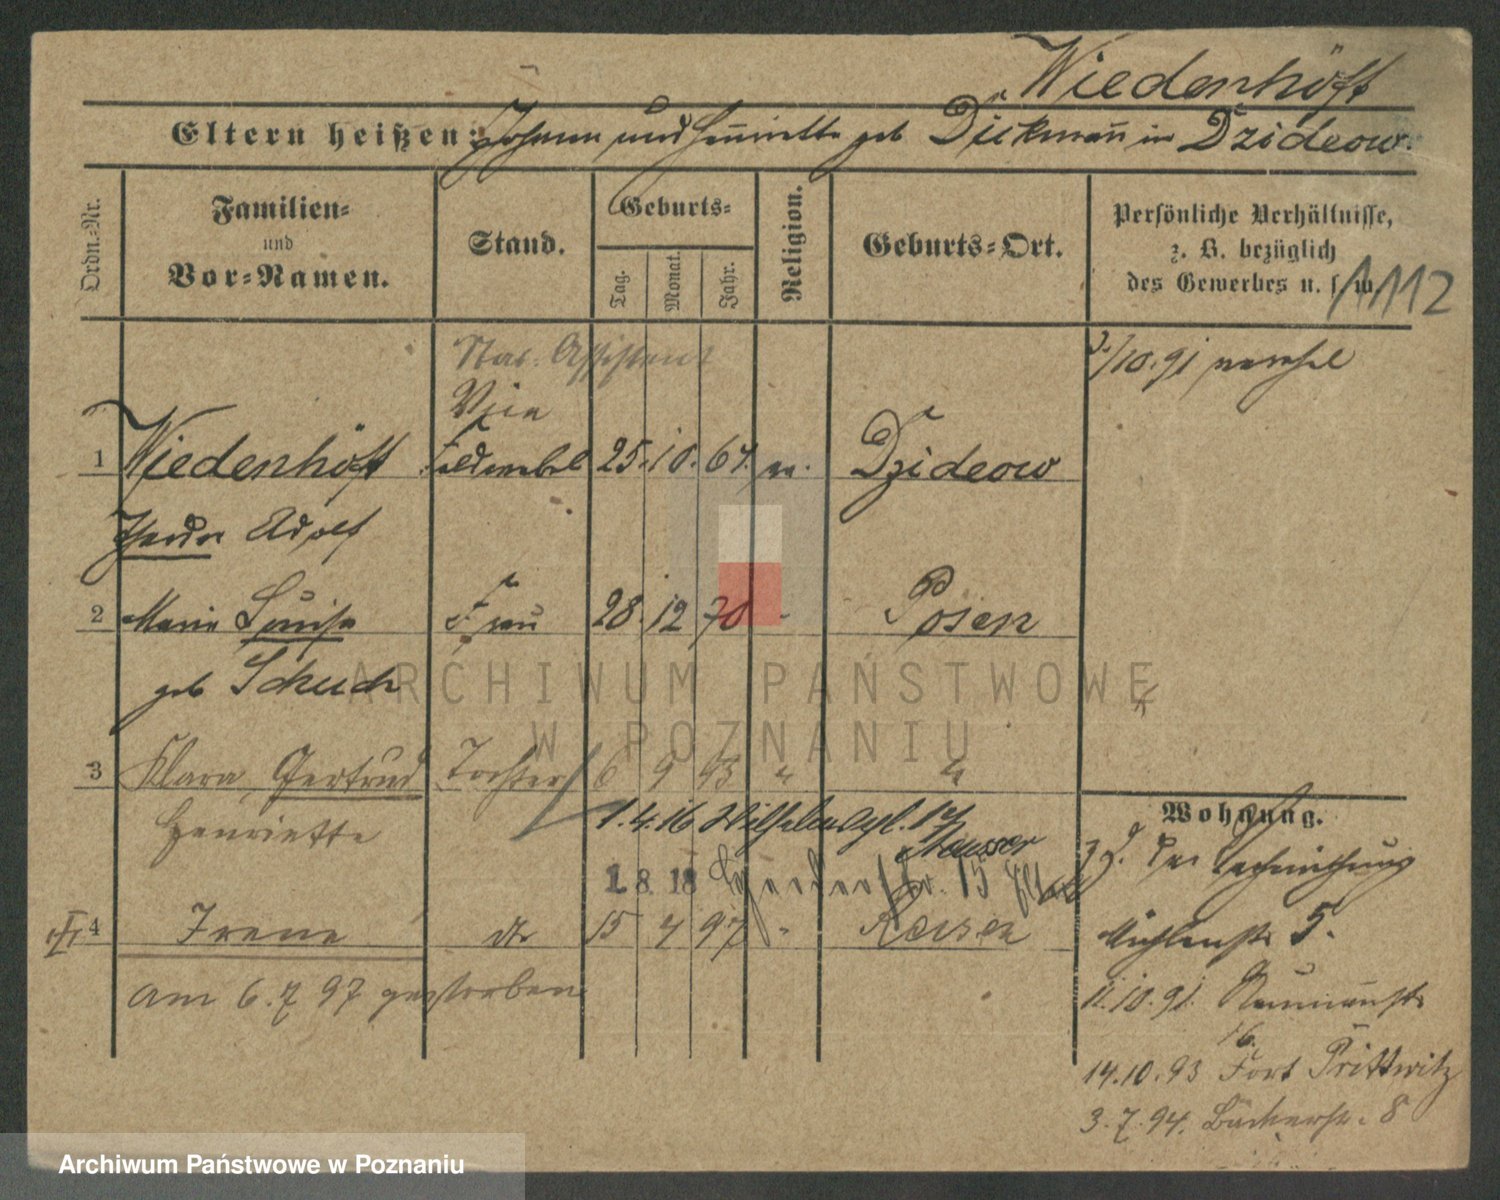 Wiedenhöft
Eltern heißen: Johann und Henriette geb Dickmann in Dzideow.
Ordn.-Nr.
Familien-
und
Vor-Namen.
Stand.
Geburts-
Tag.
Monat.
Jahr.
Religion.
Geburts-Ort.
Persönliche Verhältnisse,
z. B. bezüglich
des Gewerbes u. s. w.
1112
Assistent
/10.91
Vice
1 Wiedenhöft Feldwebel 25. 10. 67. ev. Dzideow
Theodor Adolf
2 Marie Louise Frau 28. 12 70 - Posen
geb Schuch
3 Klara, Gertrud Tochter 6 9 93 " "
Henriette
1.4.16
1.8.18 15
4 Irene dto 15 4 97 " Reisen
am 6.7 97 gestorben
Wohnung.
Mühlenstr 5.
11.10.91. Naumannstr
16.
14.10.93 Fort Prittwitz
3.7.94. Bäckerstr. 8
ARCHIWUM PAŃSTWOWE
W POZNANIU
Archiwum Państwowe w Poznaniu